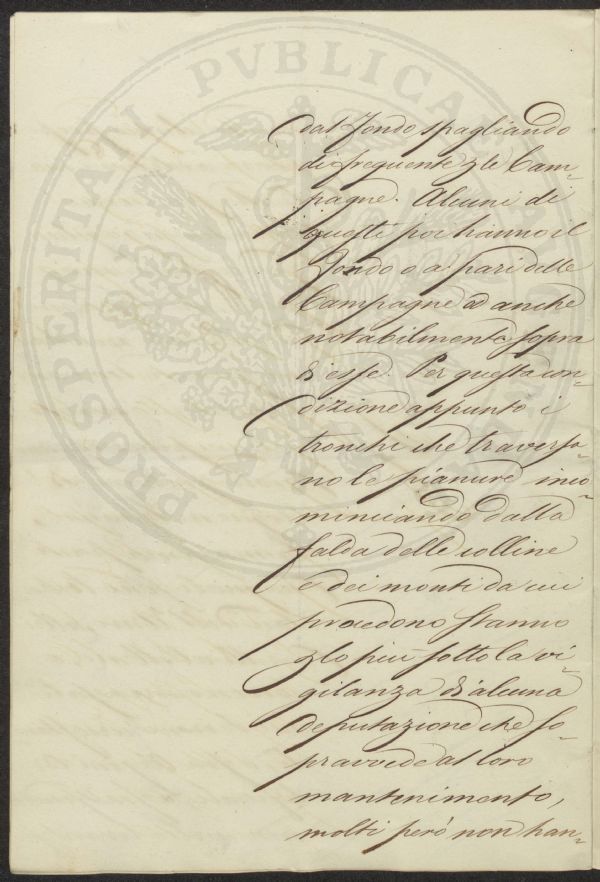 PROSPERITATI PVBLICAE
dal fondo spagliando
di frequente ꝑ le Cam=
pagne. Alcuni di
questi poi hanno il
fondo o a pari delle
Campagne od anche
notabilmente sopra
di esse. Per questa con=
dizione appunto i
tronchi che traversa=
no le pianure inco=
minciando dalla
falda delle colline
e dei monti da cui
procedono stanno
ꝑ lo più sotto la vi=
gilanza di alcuna
deputazione che so=
pravvede al loro
mantenimento,
molti però non han=